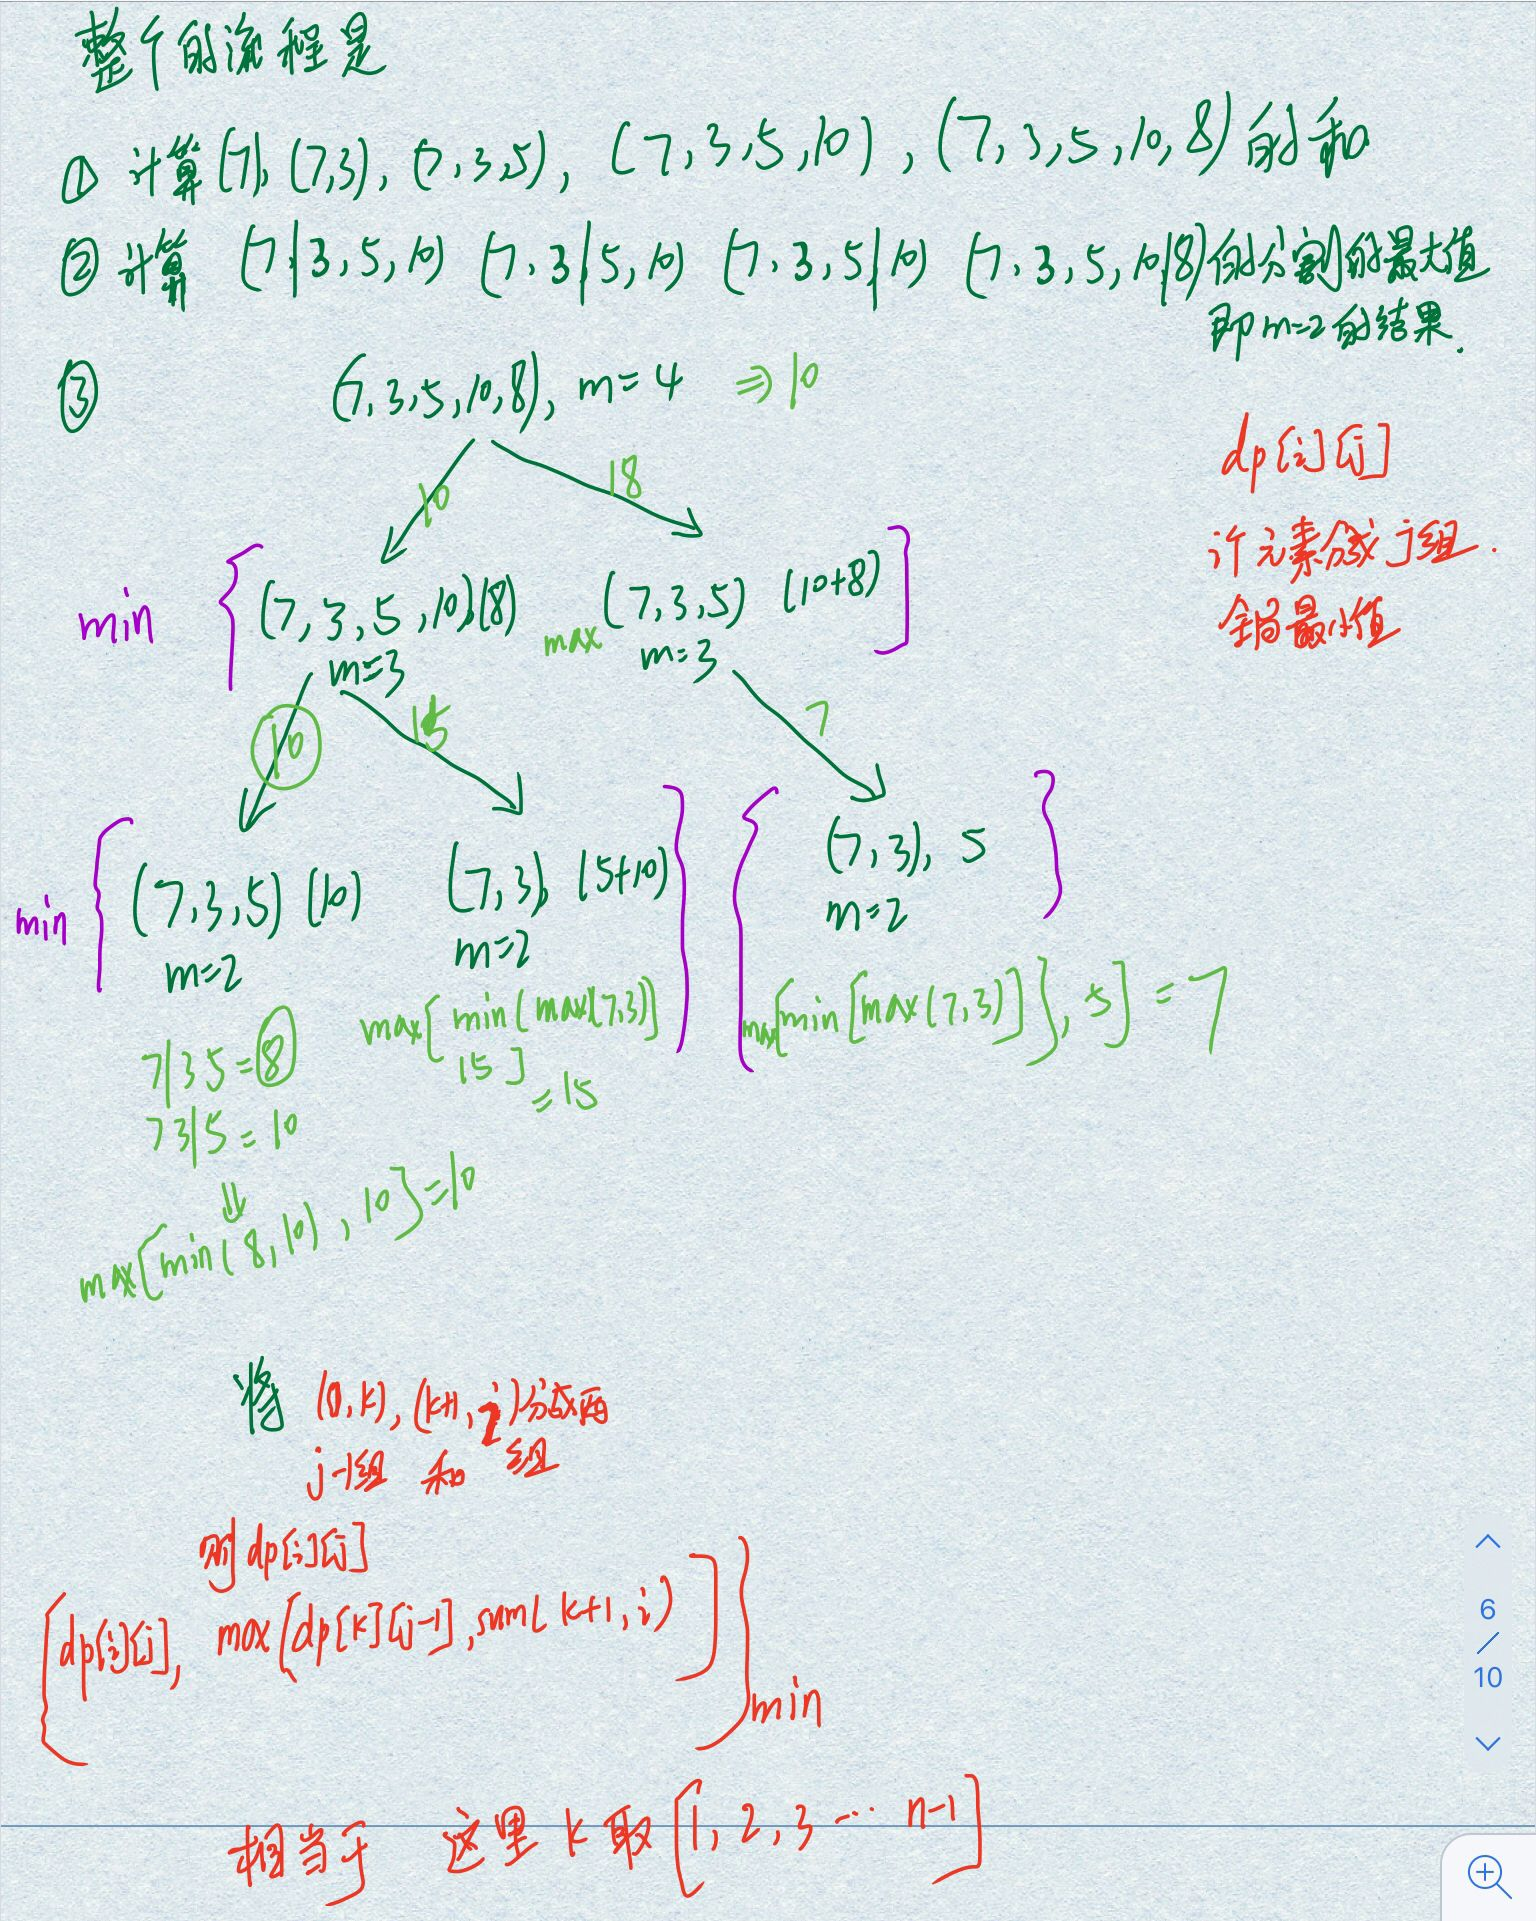 整个的流程是
① 计算(7), (7,3), (7,3,5), (7,3,5,10), (7,3,5,10,8)的和
② 计算 (7|3,5,10) (7,3|5,10) (7,3,5|10) (7,3,5,10|8)的分割的最大值
即m=2的结果.
③ (7,3,5,10,8), m=4 ⇒ 10
dp[i][j]
10 18
计元素分成j组.
min { (7,3,5,10)(8) max (7,3,5) (10+8) }
全局最小值
m=3 m=3
10 15 7
min { (7,3,5)(10) (7,3), (5+10) } { (7,3), 5 }
m=2 m=2 m=2
7|3 5=8 max[min(max(7,3)) 15] =15 max[min[max(7,3)]}, 5]=7
7 3|5=10
⇓
max[min(8,10), 10}=10
将 (0,k), (k+1,i)分成两
j-1组 和 组
则dp[i][j]
{dp[i][j], max(dp[k][j-1], sum(k+1,i)]} min
相当于 这里 k取[1,2,3… n-1]
6
/
10